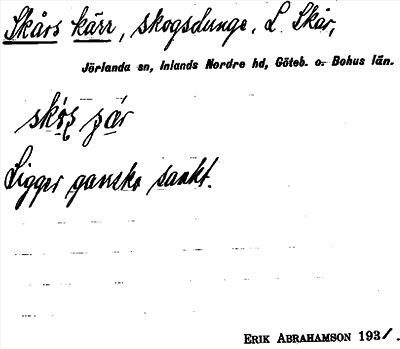 Skårs kärr, skogsdunge, L. Skår,
Jörlanda sn, Inlands Nordre hd, Göteb. o. Bohus län.
Ligger ganska sankt.
ERIK ABRAHAMSON 1931.